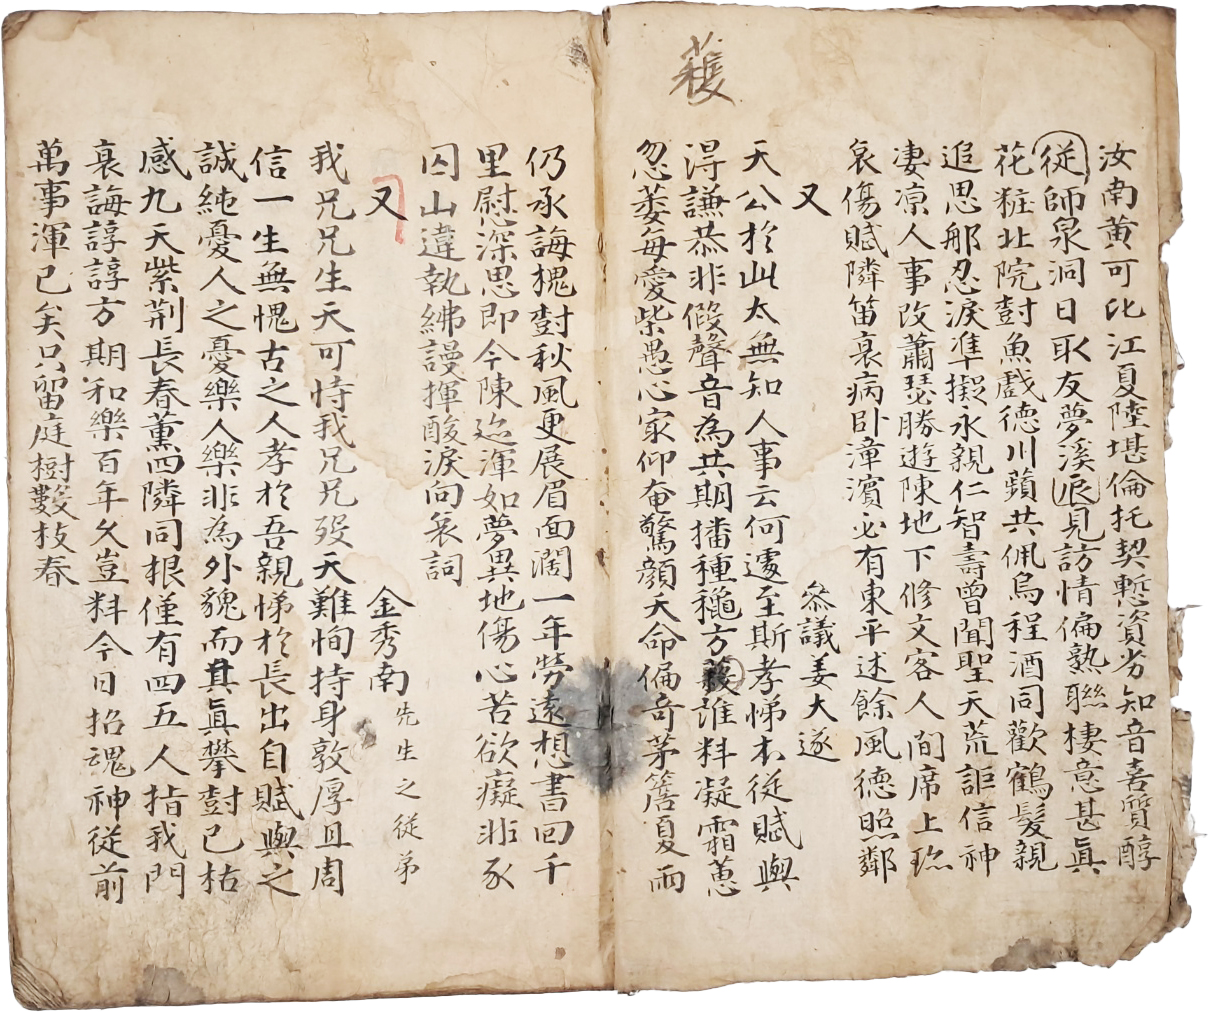 穫
汝南黄可比江夏陸堪倫托契慙資劣知音喜質醇
從師泉洞日取友夢溪辰見訪情偏熟聯棲意甚眞
花粧北院對魚戲德川蘋共佩烏程酒同歡鶴髮親
追思那忍淚準擬永親仁智壽曾聞聖天荒詎信神
凄凉人事改蕭瑟勝遊陳地下修文客人間席上珎
哀傷賦隣笛衰病卧漳濱必有東平述餘風德照鄰
又 叅議姜大遂
天公於此太無知人事云何遽至斯孝悌本從賦與
淂謙恭非假聲音為共期播種穐方穫誰料凝霜蕙
忽萎每愛柴愚心家仰奄驚顔夭命偏奇茅簷夏雨
仍承誨槐對秋風更展眉面濶一年勞遠想書回千
里慰深思即今陳迹渾如夢異地傷心苦欲癡非豕
囚山違執紼謾揮酸淚向哀詞
又 金秀南先生之從弟
我兄兄生天可恃我兄兄歿天難恂持身敦厚且周
信一生無愧古之人孝於吾親悌於長出自賦與之
誠純憂人之憂樂人樂非為外貌而其眞攀對已枯
感九天紫荊長春薫四隣同根僅有四五人指我門
裒誨諄諄方期和樂百年久豈料今日招魂神從前
萬事渾已矣只留庭樹數枝春